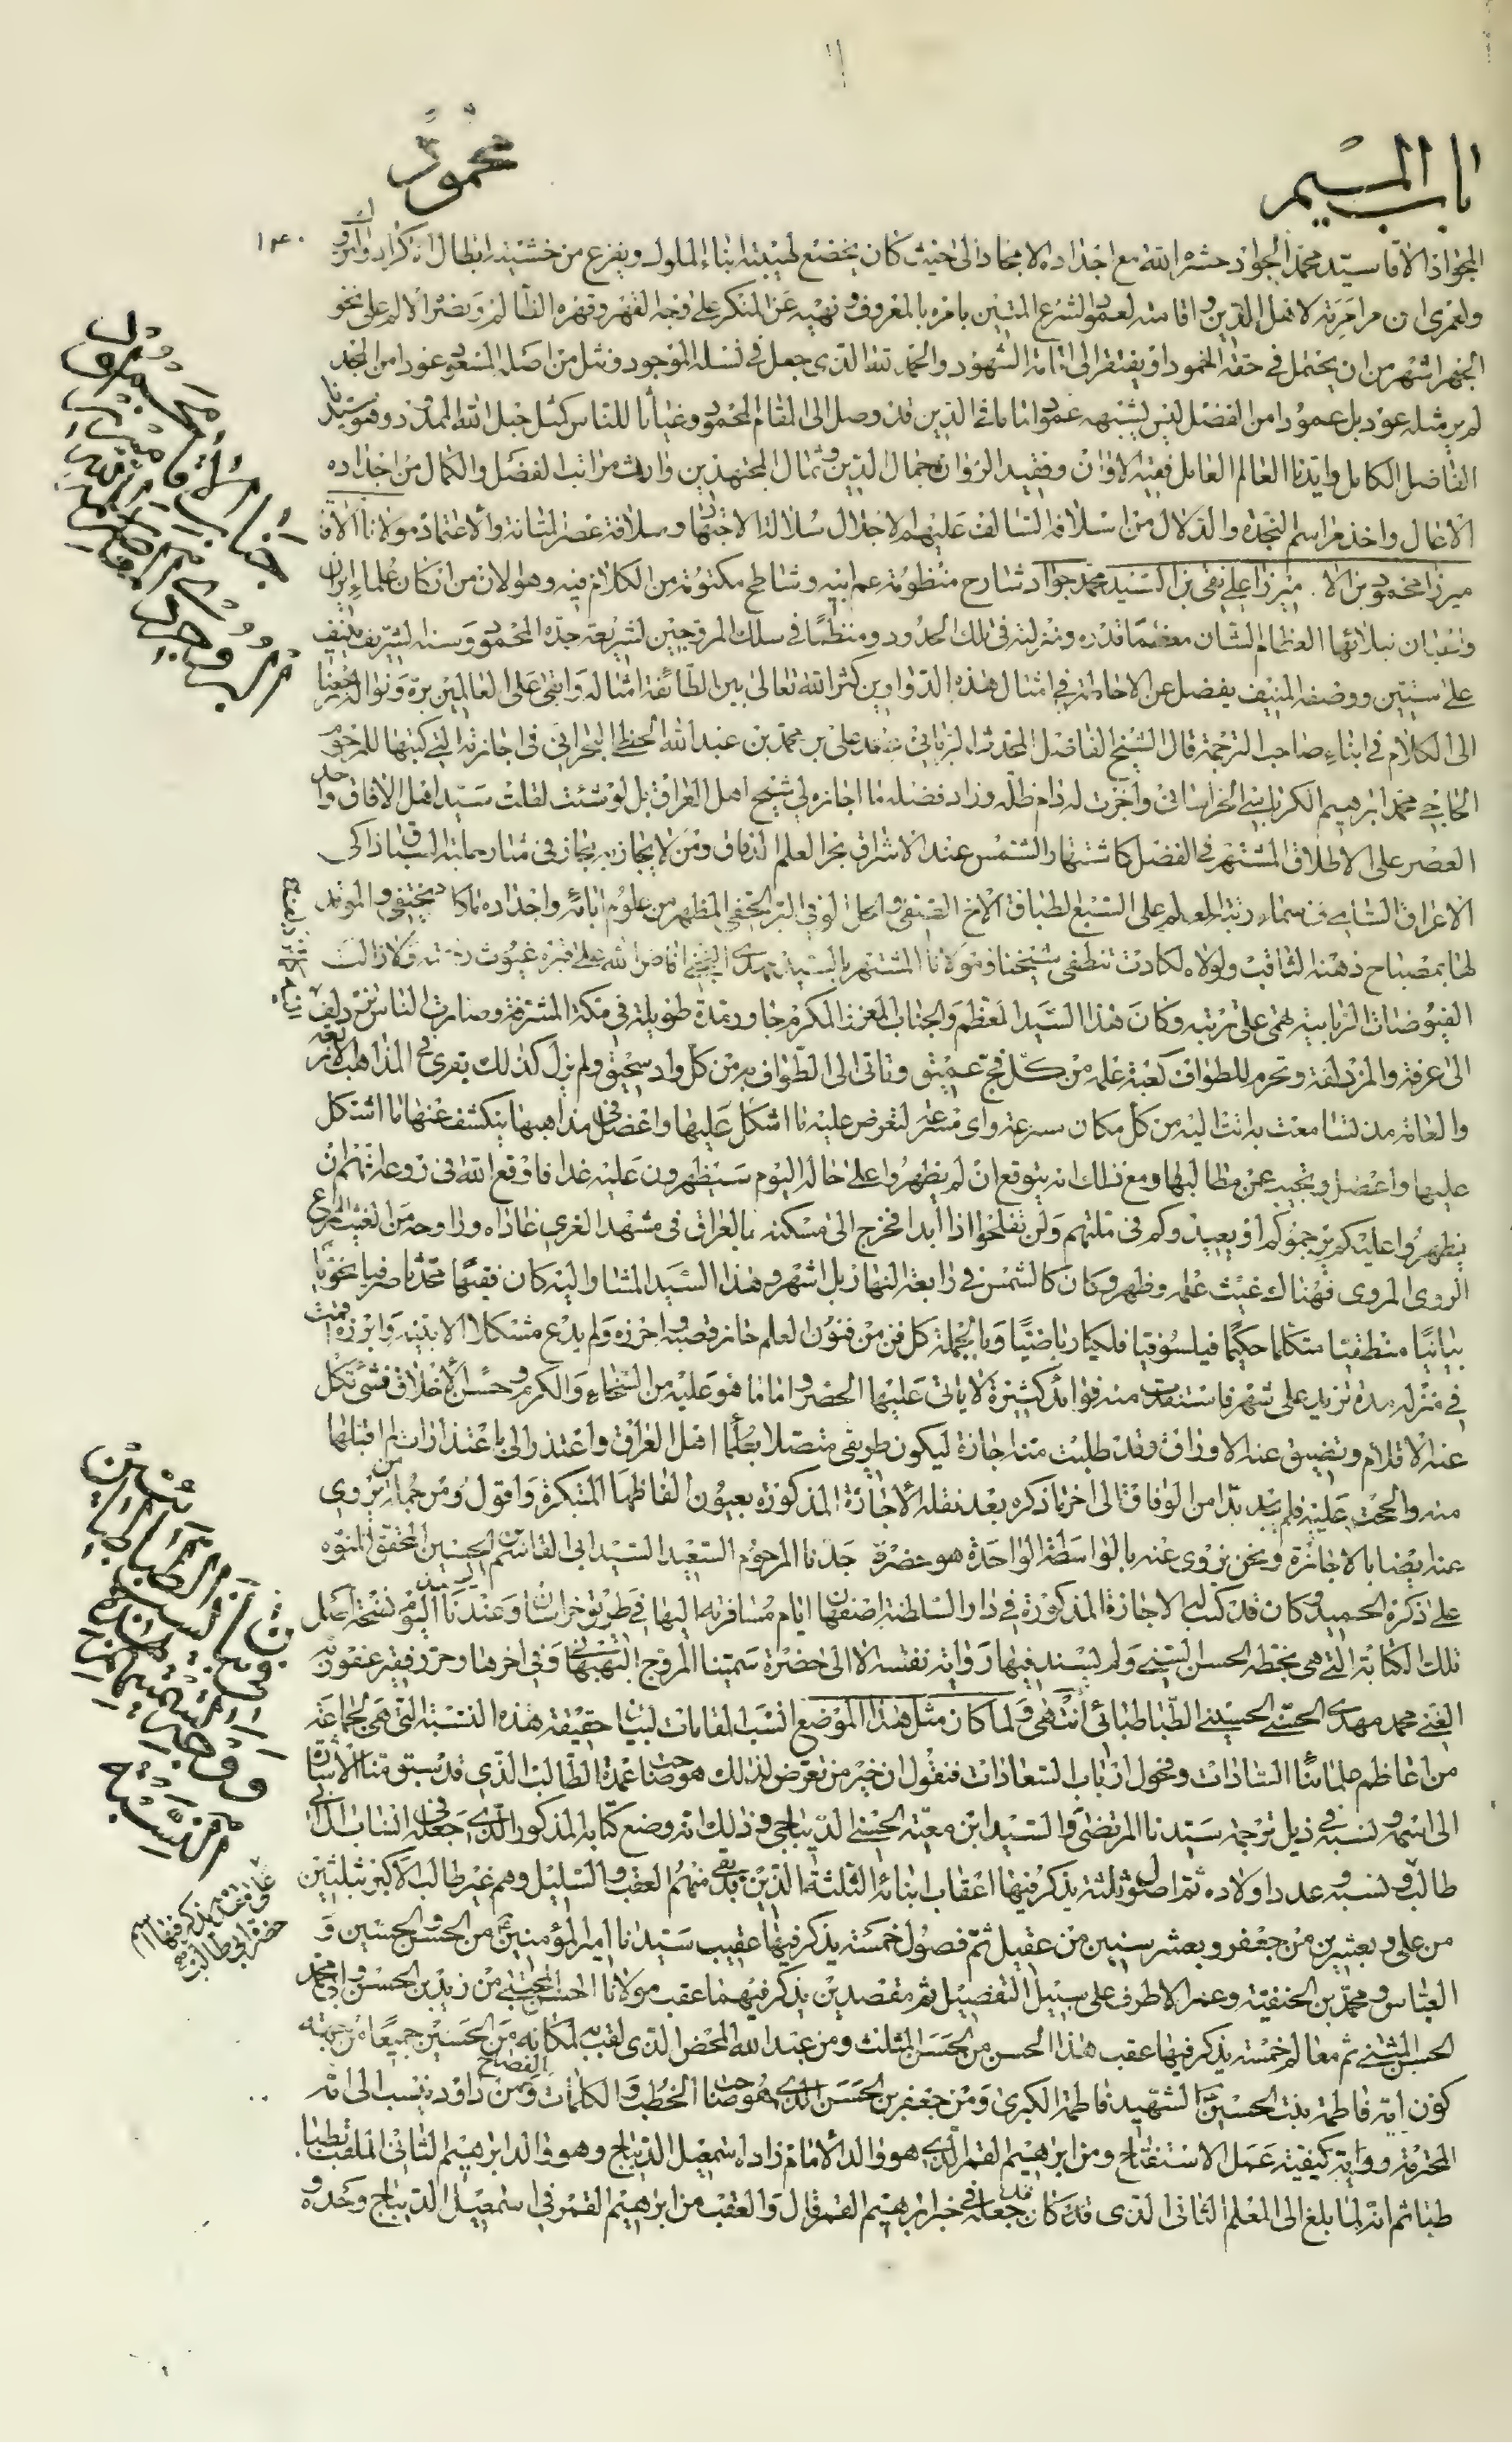 باب الميم
محمود
الجواد الاقا سيد محمد الجواد حشره الله مع اجداده الامجاد الى حيث كان يخضع لهيبته ابناء الملوك ويفزع من خشيته ابطال
ولعمرى ان مراقبته لاهل الدين واقامته لعمود الشرع المتين بامره بالمعروف ونهيه عن المنكر على وجه القهر وقهره الظالم على نحو
الجهر اشهر من ان يحتمل فى حقه الخمود او يفتقر الى اقامة الشهود والحمد لله الذى جعل فى نسله الموجود ومثل من اصله المسعود عودا من المجد
لم ير مثله عود بل عمودا من الفضل ليس يشبهه عمود اتانا الذين قد وصل الى المقام المحمود وغياثا للناس كمثل حبل الله الممدود وهو سيدنا
الفاضل الكامل وايدنا العالم العامل فقيه الاوان وفقيد الزوان جمال الدين وثمال المجتهدين وارث مراتب الفضل والكمال من اجداده
الاعمال واخذ مراسم النجدة والدلال من اسلافه السالف عليهم الاجلال سلالة الاجتهاد وسلافة عصر المتانة والاعتماد مولانا الاقا
ميرزا محمود بن الاقا ميرزا على نقى بن السيد محمد جواد شارح منظومة عم ابيه وشاطح مكتومة من الكلام فيه وهو الان من اركان علماء ايران
واعيان نبلائها العظام الشان معظما قدره ومنزلته فى تلك الحدود ومنتظما فى سلك المروجين لشريعة جده المحمود وسنه الشريف ينيف
على ستين ووصفه المنيف يفضل عن الاحاطة فى امثال هذه الدواوين كثر الله تعالى بين الطائفة امثاله وابقى على العالمين بره ونواله رجعنا
الى الكلام فى ابناء صاحب الترجمة قال الشيخ الفاضل المحدث الربانى محمد على بن محمد بن عبدالله الخطى البحرانى فى اجازته التى كتبها للمرحوم
الحاجى محمد ابرهيم الكرباسى الخراسانى واجزت له دام ظله وزاد فضله ما اجازه لى شيخ اهل العراق بل لو شئت لقلت سيد اهل الافاق واحد
العصر على الاطلاق المشتهر فى الفضل كاشتهار الشمس عند الاشراق بحر العلم الدفاق ومن لا يجاز به مجاز فى مضمار حلبة السباق
الاعراق السامى فى سماء رتبة العلم على السبع الطباق الاخ الصفى والخل الوفى البر الحفى المظهر من علوم ابائه واجداده ما كاد يختفى والموقد
لها بمصباح ذهنه الثاقب ولولاه لكادت تنطفى شيخنا ومولانا المشتهر بالسيد مهدى النجفى افاض الله على قبره غيوث رحمته ولا زالت
الفيوضات الربانية تهمى على تربته وكان هذا السيد المعظم والجناب المعزز المكرم جاور مدة طويلة فى مكة المشرفة وصارت الناس تزدلف
الى عرفة والمزدلفة وتحرم للطواف كعبة علمه من كل فج عميق وتاتى الى الطواف به من كل واد سحيق ولم يزل كذلك يقرى فى المذاهب الاربعة
والعامة مذ تسامعت به اتت اليه من كل مكان بسرعة واى مسرعة لتعرض عليه ما اشكل عليها واعضل فى مذاهبها ينكشف عنها ما اشتكل
عليها واعضل ويجيب عن مطالبها ومع ذلك انه يتوقع ان لم يظهروا على حاله اليوم سيظهرون عليه غدا فاوقع الله فى روعه انهم ان
يظهروا عليكم يرجموكم او يعيدوكم فى ملتهم ولن تفلحوا اذا ابدا فخرج الى مسكنه بالعراق فى مشهد الغرى غاداه وراوحه من الغيث المريع
الروى المروى فهناك غيث علمه وظهر وكان كالشمس فى رابعة النهار بل اشهر وهذا السيد المشار اليه كان فقيها محدثا صرفيا نحويا
بيانيا منطقيا متكلما حكيما فيلسوفيا فلكيا رياضيا وبالجملة كل فن من فنون العلم حاز قصبه واحرزه ولم يدع مشكلا الا بينه وابرزه اقمت
فى منزله مدة تزيد على شهر فاستفدت منه فوائد كثيرة لا ياتى عليها الحصر واما ما هو عليه من السخاء والكرم وحسن الاخلاق فشئ تكل
عنه الاقلام وتضيق عنه الاوراق وقد طلبت منه اجازة ليكون طريقى متصلا بعلماء اهل العراق واعتذر الى باعتذارات لم اقبلها
منه والححت عليه فلم يجد بدا من الوفاق الى اخر ما ذكره بعد نقله الاجازة المذكورة بعيون الفاظها المبتكرة واقول ومن جملة من يروى
عنه ايضا بالاجازة ونحن نروى عنه بالواسطة الواحدة هو حضرة جدنا المرحوم السعيد السيد ابى القاسم بن الحسين المحقق المنوه
على ذكره الحميد وكان قد كتب له الاجازة المذكورة فى دار السلطنة اصفهان ايام مسافرته اليها فى طريق خراسان وعندنا اليوم نسخة اصل
تلك الكتابة التى هى بخطه الحسن السنى ولم يسند فيها رواية نفسه الا الى حضرة سمينا المروج البهبهانى وفى اخرها وحرر فقير عفو ربه
الغنى محمد مهدى الحسنى الحسينى الطباطبائى انتهى ولما كان مثل هذا الموضع انسب المقامات لبيان حقيقة هذه النسبة التى هى لجماعة
من اعاظم علمائنا السادات وفحول ارباب السعادات فنقول ان خير من تعرض لذلك هو صاحب عمدة الطالب الذى قد سبق منا الاشارة
الى اسمه ونسبه فى ذيل ترجمة سيدنا المرتضى والسيد ابن معية الحسنى الديباجى وذلك انه وضع كتابه المذكور الذى جعله فى انساب ال ابى
طالب ونسبه وعدد اولاده ثم اصول ثلثة يذكر فيها اعقاب ابنائه الثلثة الذين بقى منهم العقب والسليل وهم غير طالب الاكبر بثلثين
من على وبعشرين من جعفر وبعشر سنين من عقيل ثم فصول خمسة يذكر فيها عقيب سيدنا امير المؤمنين من الحسن والحسين و
العباس ومحمد بن الحنفية وعمر الاطرف على سبيل التفصيل ثم مقصدين يذكر فيهما عقب مولانا الحسن المجتبى من زيد بن الحسن وابى محمد
الحسن المثنى ثم معالم خمسة يذكر فيها عقب هذا الحسن من الحسن المثلث ومن عبدالله المحض الذى لقب به لمكانه من الحسنين جميعا من جهة
كون امه فاطمة بنت الحسين الشهيد فاطمة الكبرى ومن جعفر بن الحسن الذى هو صاحب الخطب والكلمات الفصاح ومن داود وينسب الى امه
المحترمة رواية كيفية عمل الاستفتاح ومن ابرهيم الغمر الذى هو والد الامام زاده اسمعيل الديباج وهو والد ابرهيم الثانى الملقب بطبا
طبا ثم انه لما بلغ الى المعلم الثانى الذى قد كان جعله فى اخبار ابرهيم الغمر قال والعقب من ابرهيم الغمر فى اسمعيل الديباج وحده و
جناب الاقا ميرزا محمود
البروجردى
بيان نسب السادات الطباطبائيين
ووجه تسميتهم بهذا النسب